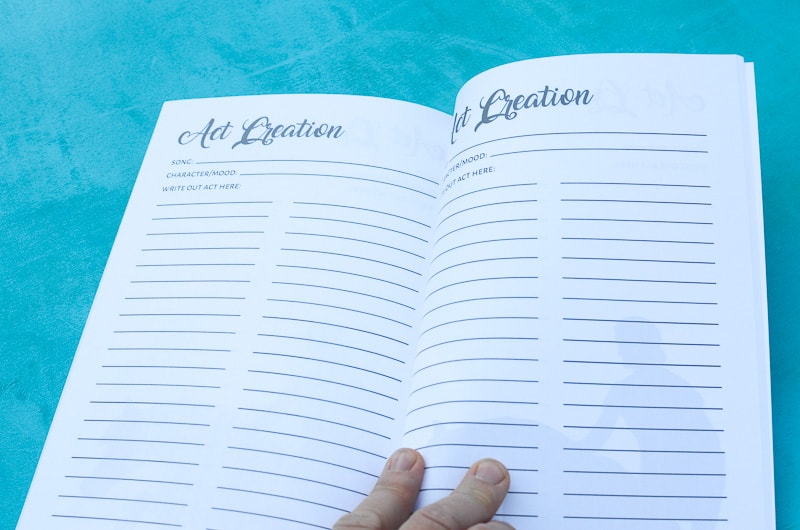 Act Creation
SONG:
CHARACTER/MOOD:
WRITE OUT ACT HERE:
Act Creation
CHARACTER/MOOD:
OUT ACT HERE: